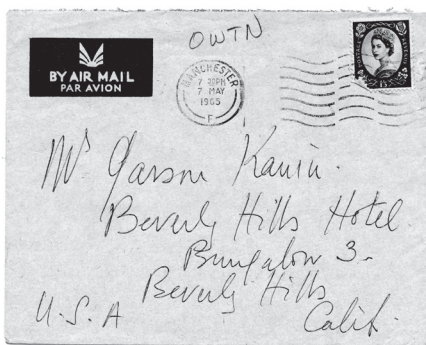 OWTN
BY AIR MAIL
PAR AVION
MANCHESTER
7 30PM
7 MAY
1965
F
Mr Garson Kanin.
Beverly Hills Hotel
Bungalow 3.
Beverly Hills
U.S.A Calif.